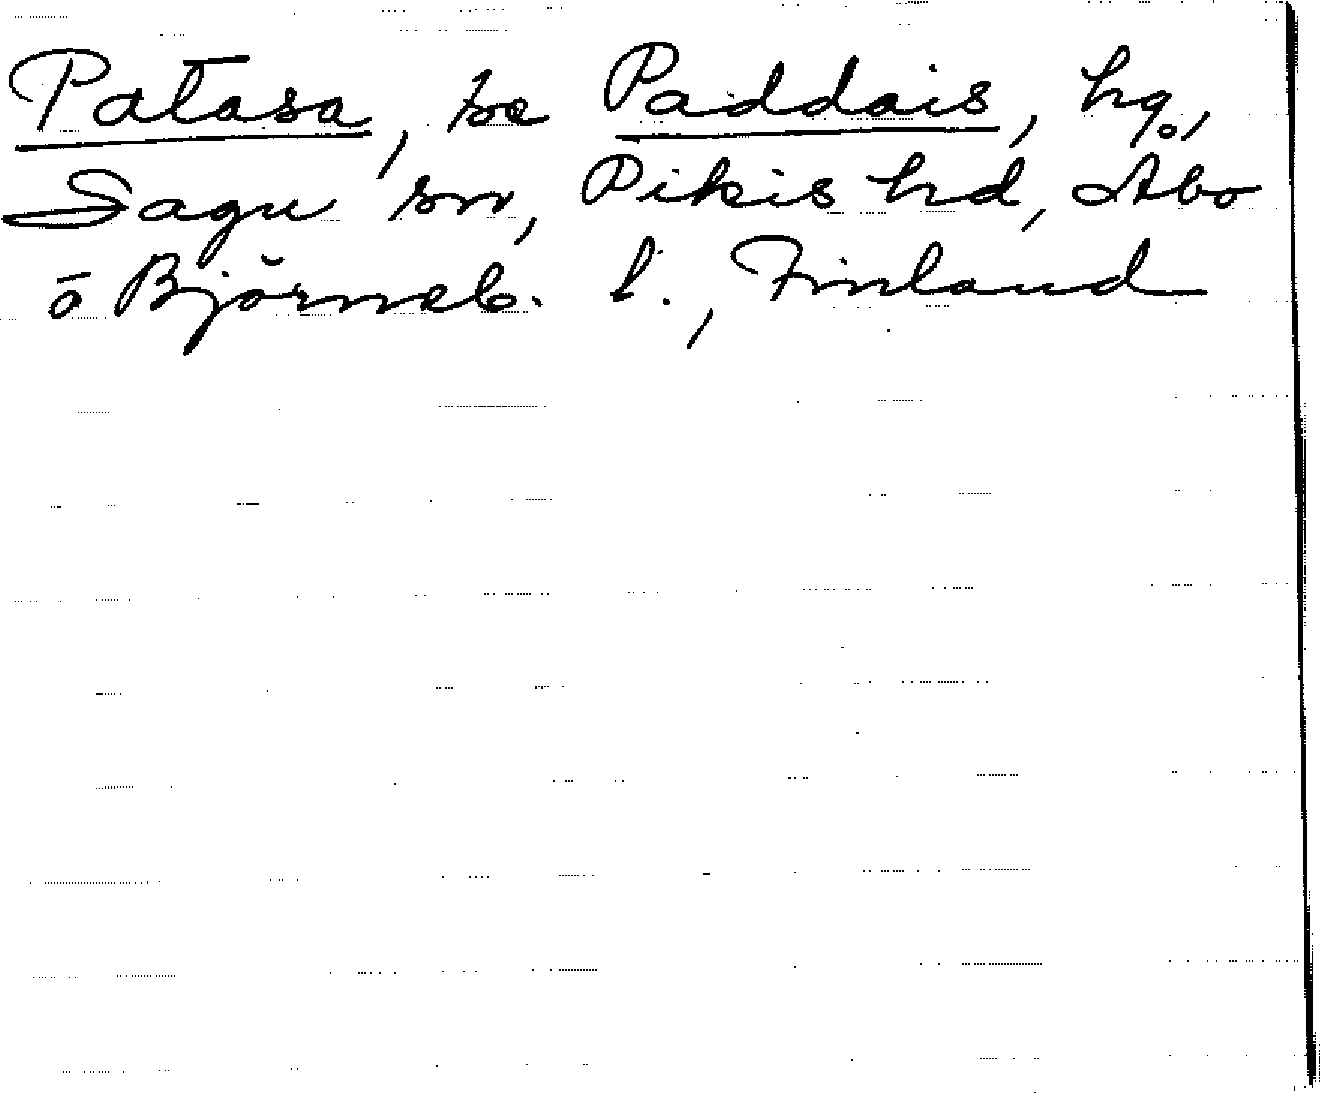 Patasa, se Paddais, hg.,
Sagu sn, Pikis hd, Åbo
o Björneb. l., Finland